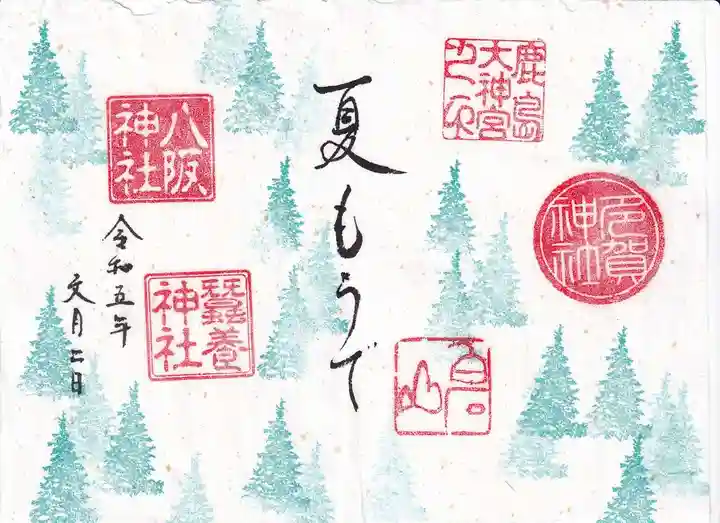 鹿島
大神宮
之印
賀
神社
夏もうで
八阪
神社
蠶養
神社
令和五年
文月二日